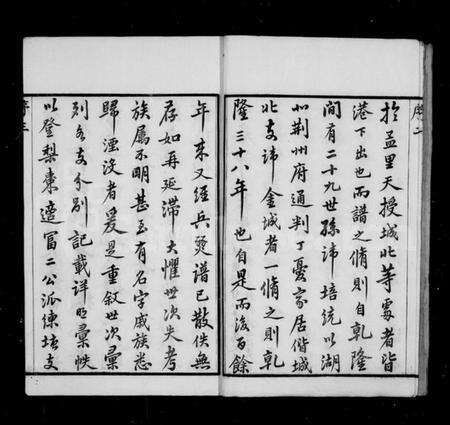 於孟里天授城北等處者皆
港下出也而譜之脩則自乾隆
間有二十九世孫諱培統以湖
北荆州府通判丁憂家居偕城
北支諱金城者一脩之則乾
隆三十八年也自是而後百餘
年來又經兵燹譜已散佚無
存如再延滯大懼世次失考
族属不明甚至有名字戚族悉
歸湮沒者爰是重叙世次彙
列各支分别記載詳明彙帙
以登梨棗遵富二公派係培支
序二
序三